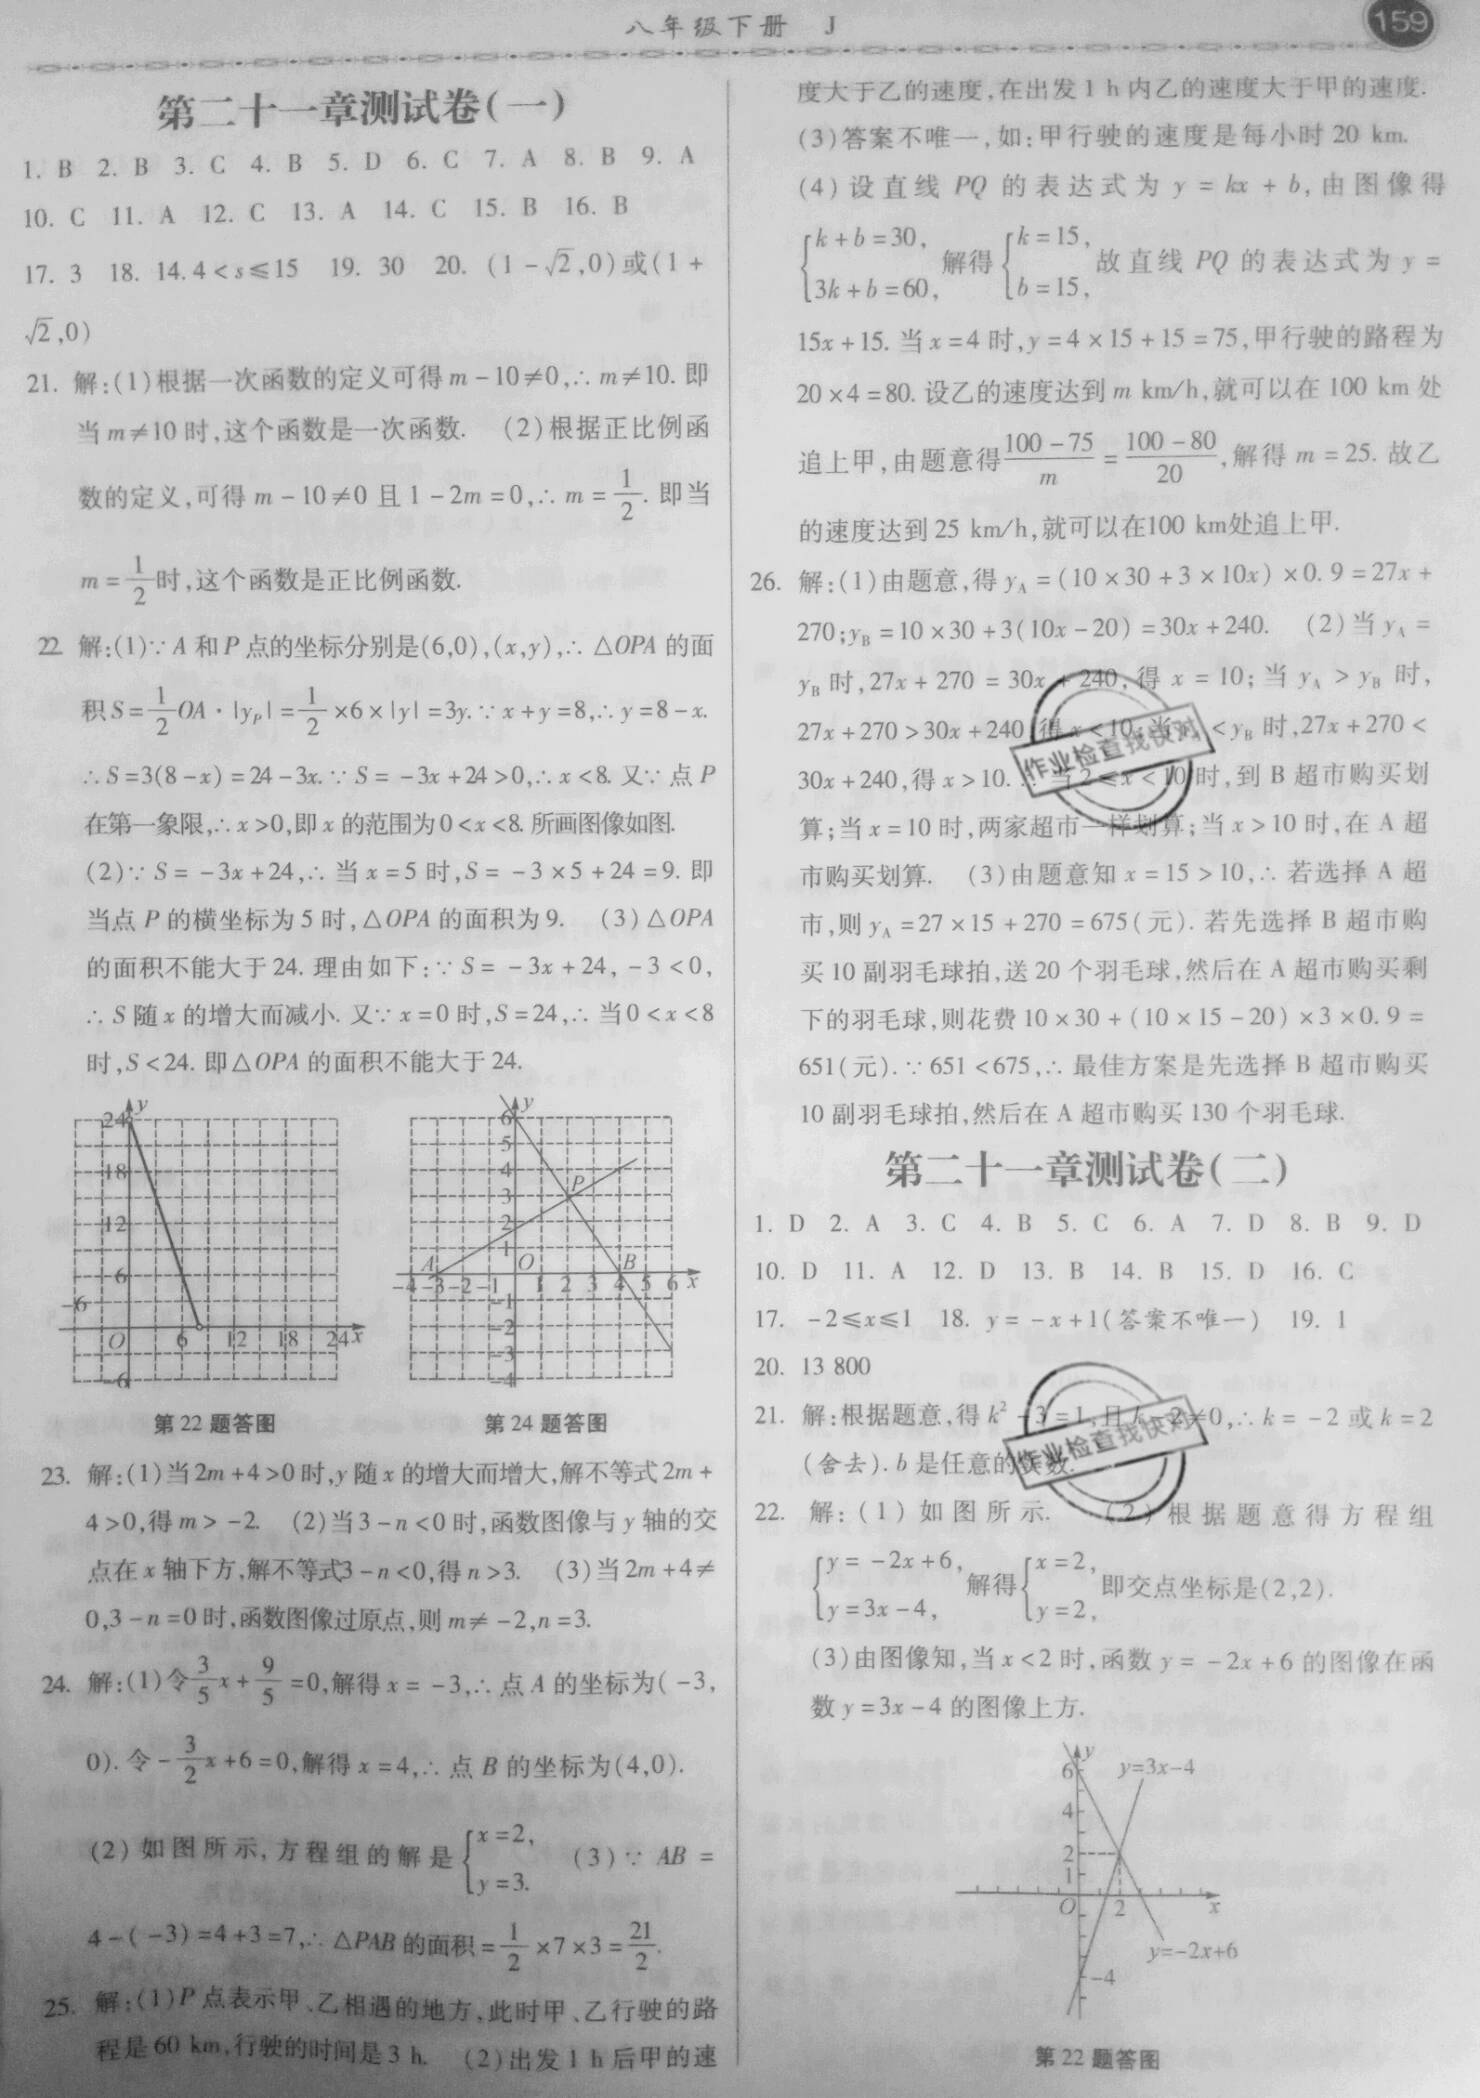 八年级下册 J
159
第二十一章测试卷(一)
1. B 2. B 3. C 4. B 5. D 6. C 7. A 8. B 9. A
10. C 11. A 12. C 13. A 14. C 15. B 16. B
17. 3 18. 14.4<s≤15 19. 30 20. (1-√2,0)或(1+
√2,0)
21. 解:(1)根据一次函数的定义可得m-10≠0,∴m≠10. 即
当m≠10时,这个函数是一次函数. (2)根据正比例函
数的定义,可得m-10≠0且1-2m=0,∴m=1/2. 即当
m=1/2时,这个函数是正比例函数.
22. 解:(1)∵A和P点的坐标分别是(6,0),(x,y),∴△OPA的面
积S=1/2OA·|yP|=1/2×6×|y|=3y.∵x+y=8,∴y=8-x.
∴S=3(8-x)=24-3x.∵S=-3x+24>0,∴x<8. 又∵点P
在第一象限,∴x>0,即x的范围为0<x<8. 所画图像如图.
(2)∵S=-3x+24,∴当x=5时,S=-3×5+24=9. 即
当点P的横坐标为5时,△OPA的面积为9. (3)△OPA
的面积不能大于24. 理由如下:∵S=-3x+24,-3<0,
∴S随x的增大而减小. 又∵x=0时,S=24,∴当0<x<8
时,S<24. 即△OPA的面积不能大于24.
y
24
18
12
6
-6
O 6 12 18 24 x
-6
第22题答图
y
6
5
4
3 P
2
1
A O B
-4 -3 -2 -1 1 2 3 4 5 6 x
-1
-2
-3
-4
第24题答图
23. 解:(1)当2m+4>0时,y随x的增大而增大,解不等式2m+
4>0,得m>-2. (2)当3-n<0时,函数图像与y轴的交
点在x轴下方,解不等式3-n<0,得n>3. (3)当2m+4≠
0,3-n=0时,函数图像过原点,则m≠-2,n=3.
24. 解:(1)令3/5x+9/5=0,解得x=-3,∴点A的坐标为(-3,
0). 令-3/2x+6=0,解得x=4,∴点B的坐标为(4,0).
(2)如图所示,方程组的解是{x=2, y=3. (3)∵AB=
4-(-3)=4+3=7,∴△PAB的面积=1/2×7×3=21/2.
25. 解:(1)P点表示甲、乙相遇的地方,此时甲、乙行驶的路
程是60 km,行驶的时间是3 h. (2)出发1 h后甲的速
度大于乙的速度,在出发1 h内乙的速度大于甲的速度.
(3)答案不唯一,如:甲行驶的速度是每小时20 km.
(4)设直线PQ的表达式为y=kx+b,由图像得
{k+b=30, 3k+b=60, 解得{k=15, b=15, 故直线PQ的表达式为y=
15x+15. 当x=4时,y=4×15+15=75,甲行驶的路程为
20×4=80. 设乙的速度达到m km/h,就可以在100 km处
追上甲,由题意得(100-75)/m=(100-80)/20,解得m=25. 故乙
的速度达到25 km/h,就可以在100 km处追上甲.
26. 解:(1)由题意,得yA=(10×30+3×10x)×0.9=27x+
270;yB=10×30+3(10x-20)=30x+240. (2)当yA=
yB时,27x+270=30x+240,得x=10;当yA>yB时,
27x+270>30x+240,得x<10;当 <yB时,27x+270<
30x+240,得x>10. ∴当2≤x<10时,到B超市购买划
算;当x=10时,两家超市一样划算;当x>10时,在A超
市购买划算. (3)由题意知x=15>10,∴若选择A超
市,则yA=27×15+270=675(元). 若先选择B超市购
买10副羽毛球拍,送20个羽毛球,然后在A超市购买剩
下的羽毛球,则花费10×30+(10×15-20)×3×0.9=
651(元).∵651<675,∴最佳方案是先选择B超市购买
10副羽毛球拍,然后在A超市购买130个羽毛球.
作业检查找快对
第二十一章测试卷(二)
1. D 2. A 3. C 4. B 5. C 6. A 7. D 8. B 9. D
10. D 11. A 12. D 13. B 14. B 15. D 16. C
17. -2≤x≤1 18. y=-x+1(答案不唯一) 19. 1
20. 13 800
21. 解:根据题意,得k²-3=1,且k-2≠0,∴k=-2或k=2
(舍去). b是任意的实数.
作业检查找快对
22. 解:(1)如图所示. (2)根据题意得方程组
{y=-2x+6, y=3x-4, 解得{x=2, y=2, 即交点坐标是(2,2).
(3)由图像知,当x<2时,函数y=-2x+6的图像在函
数y=3x-4的图像上方.
y
6 y=3x-4
4
2
1
O 2 x
y=-2x+6
-4
第22题答图